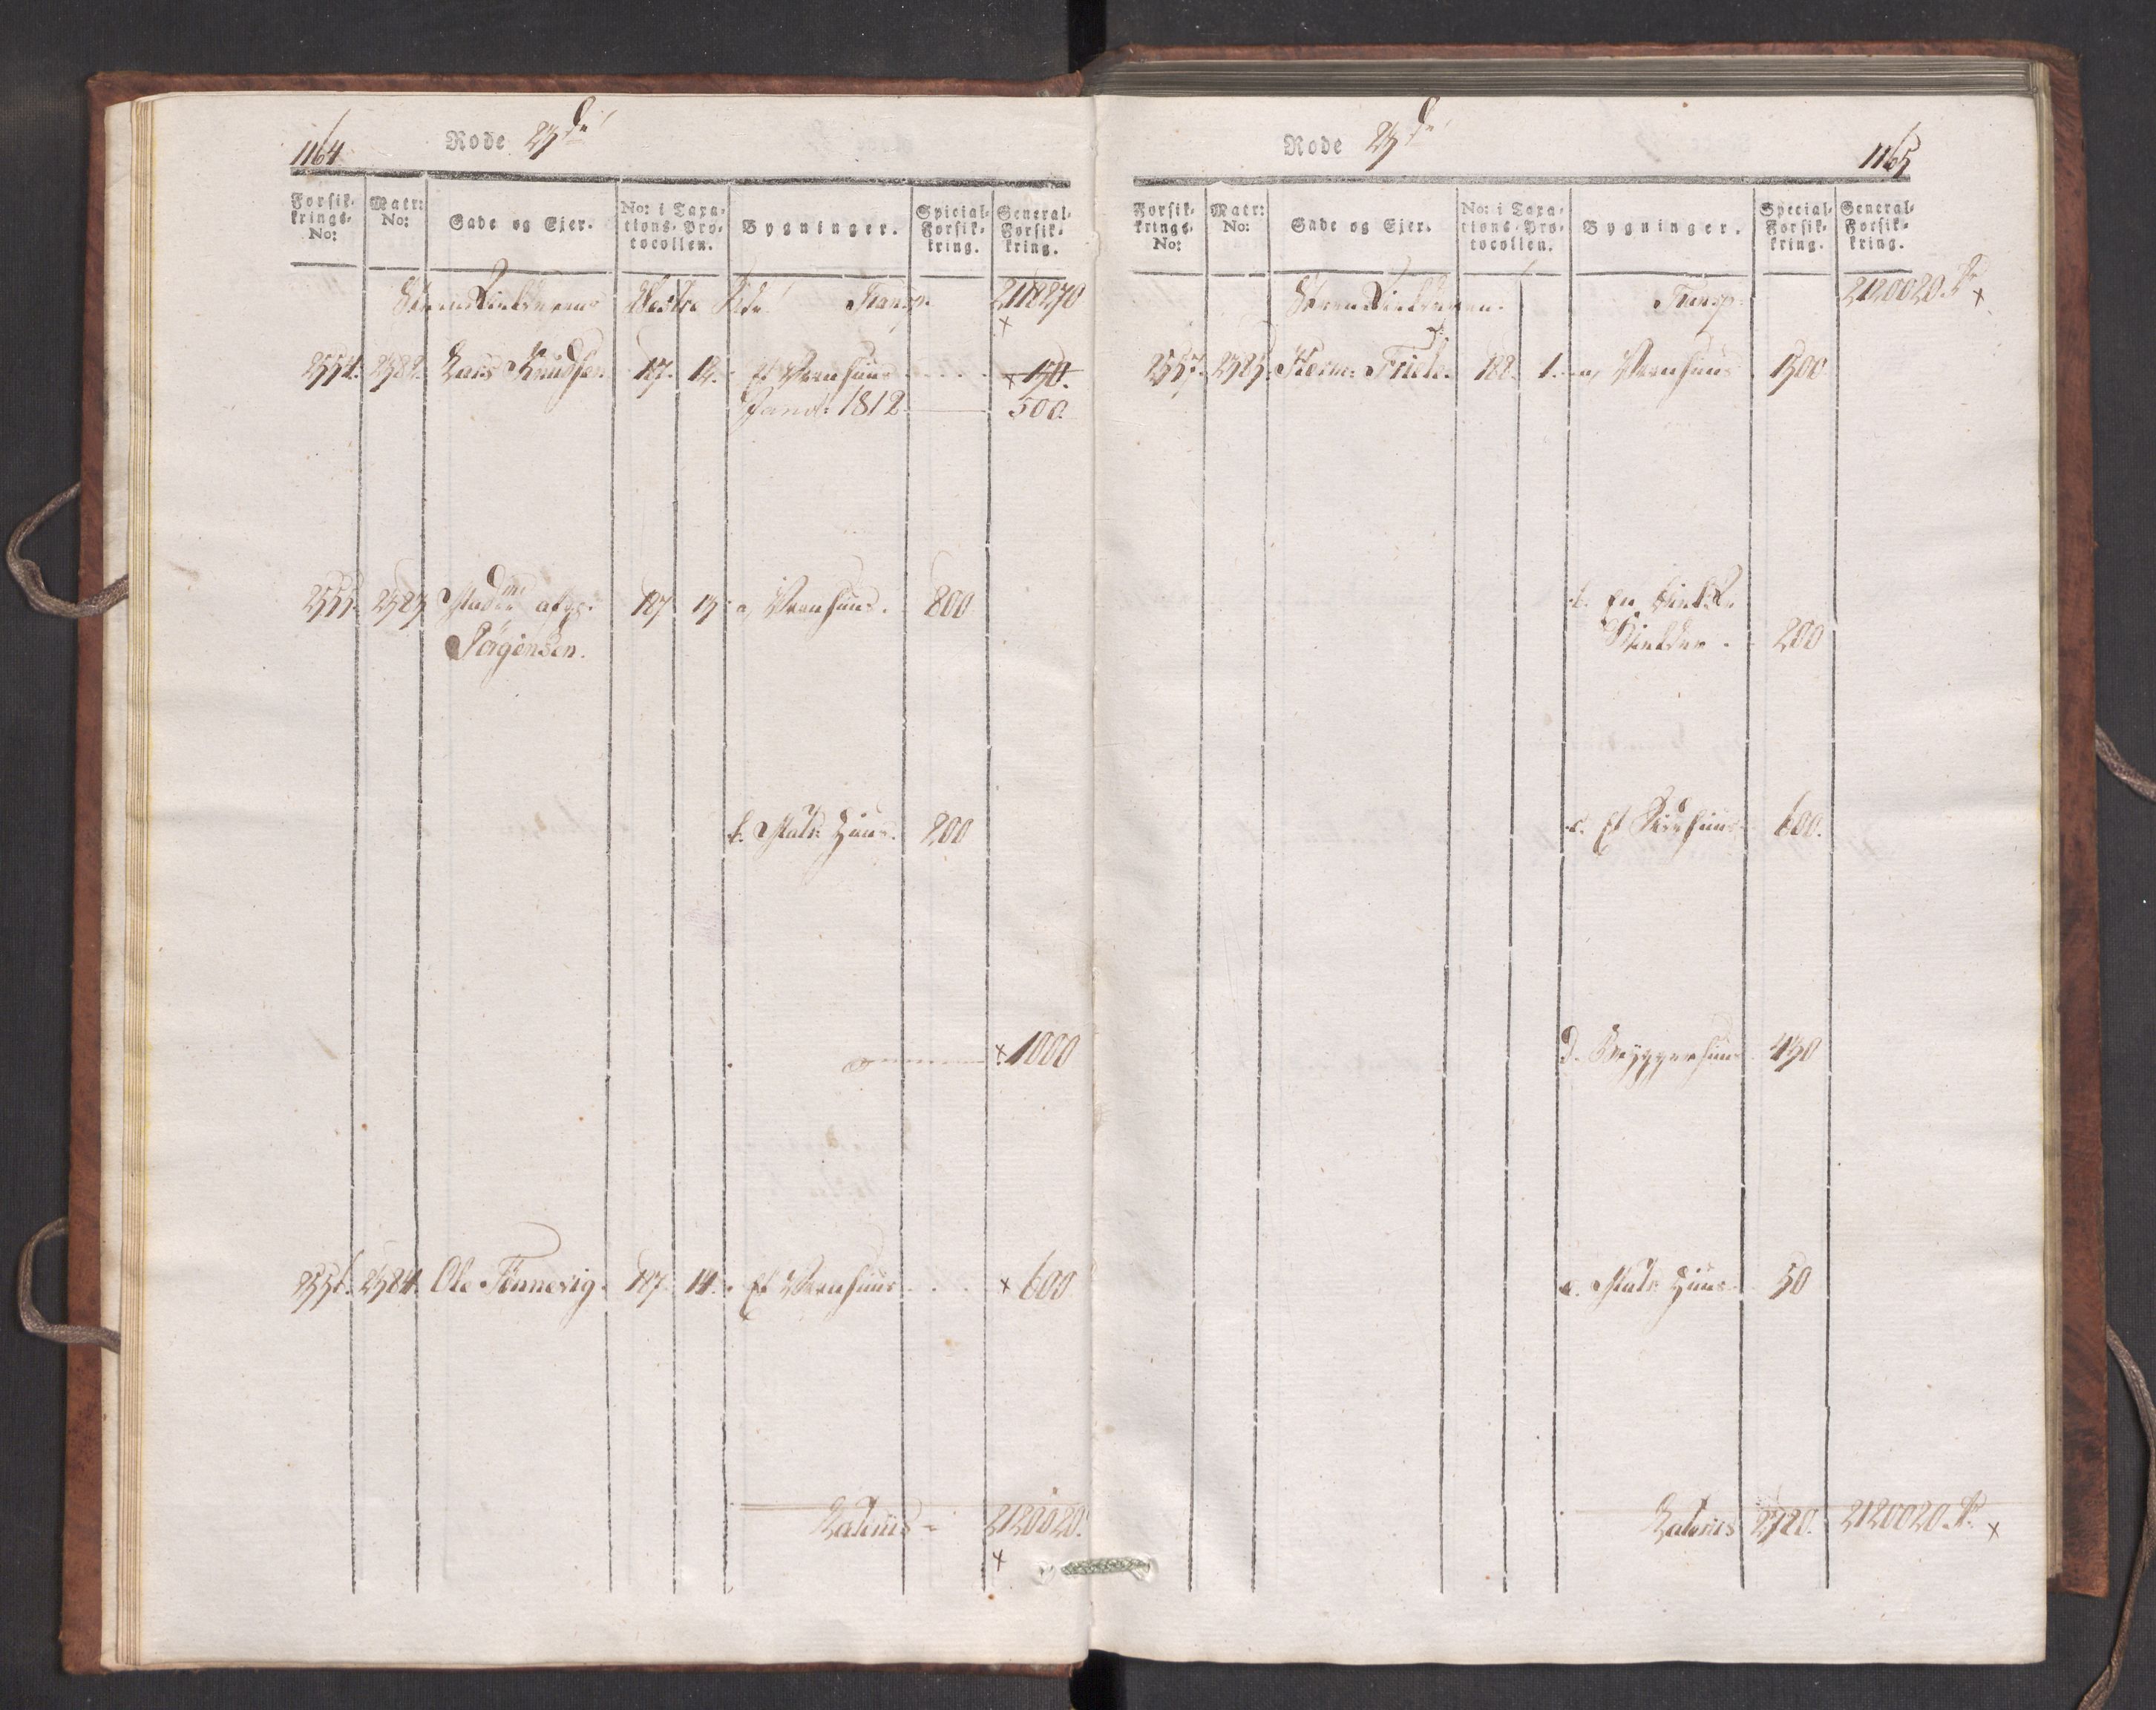 1164
Rode 23de
Forsik-
krings-
No:
Matr:
No:
Gade og Ejer.
No: i Taxa-
tions-Pro-
tocollen.
Bygninger.
Spicial-
Forsik-
kring.
General-
Forsik-
kring.
Transp. 2118270
2554. 2382. Lars Knudsen 187. 12. Et Vaanhuus 150.
Forand: 1812 500.
2555. 2383 Madme afg: 187 13 a, Vaanhuus. 800
Jörgensen.
b. Matr: Huus. 200
1000
2556. 2384. Ole Tennevig. 187. 14. Et Vaanhuus 600
Lateris 2120020.
Rode 23de
1165
Forsik-
krings-
No:
Matr:
No:
Gade og Ejer.
No: i Taxa-
tions-Pro-
tocollen.
Bygninger.
Special-
Forsik-
kring.
General-
Forsik-
kring.
Transp: 2120020.
2557. 2385. Herm: Friele. 188. 1. a, Vaanhuus 1500
b. En
Kielder 200
c. Et 600.
d. Bryggerhuus 430
e. Matr: Huus 50
Lateris 2780. 2120020.